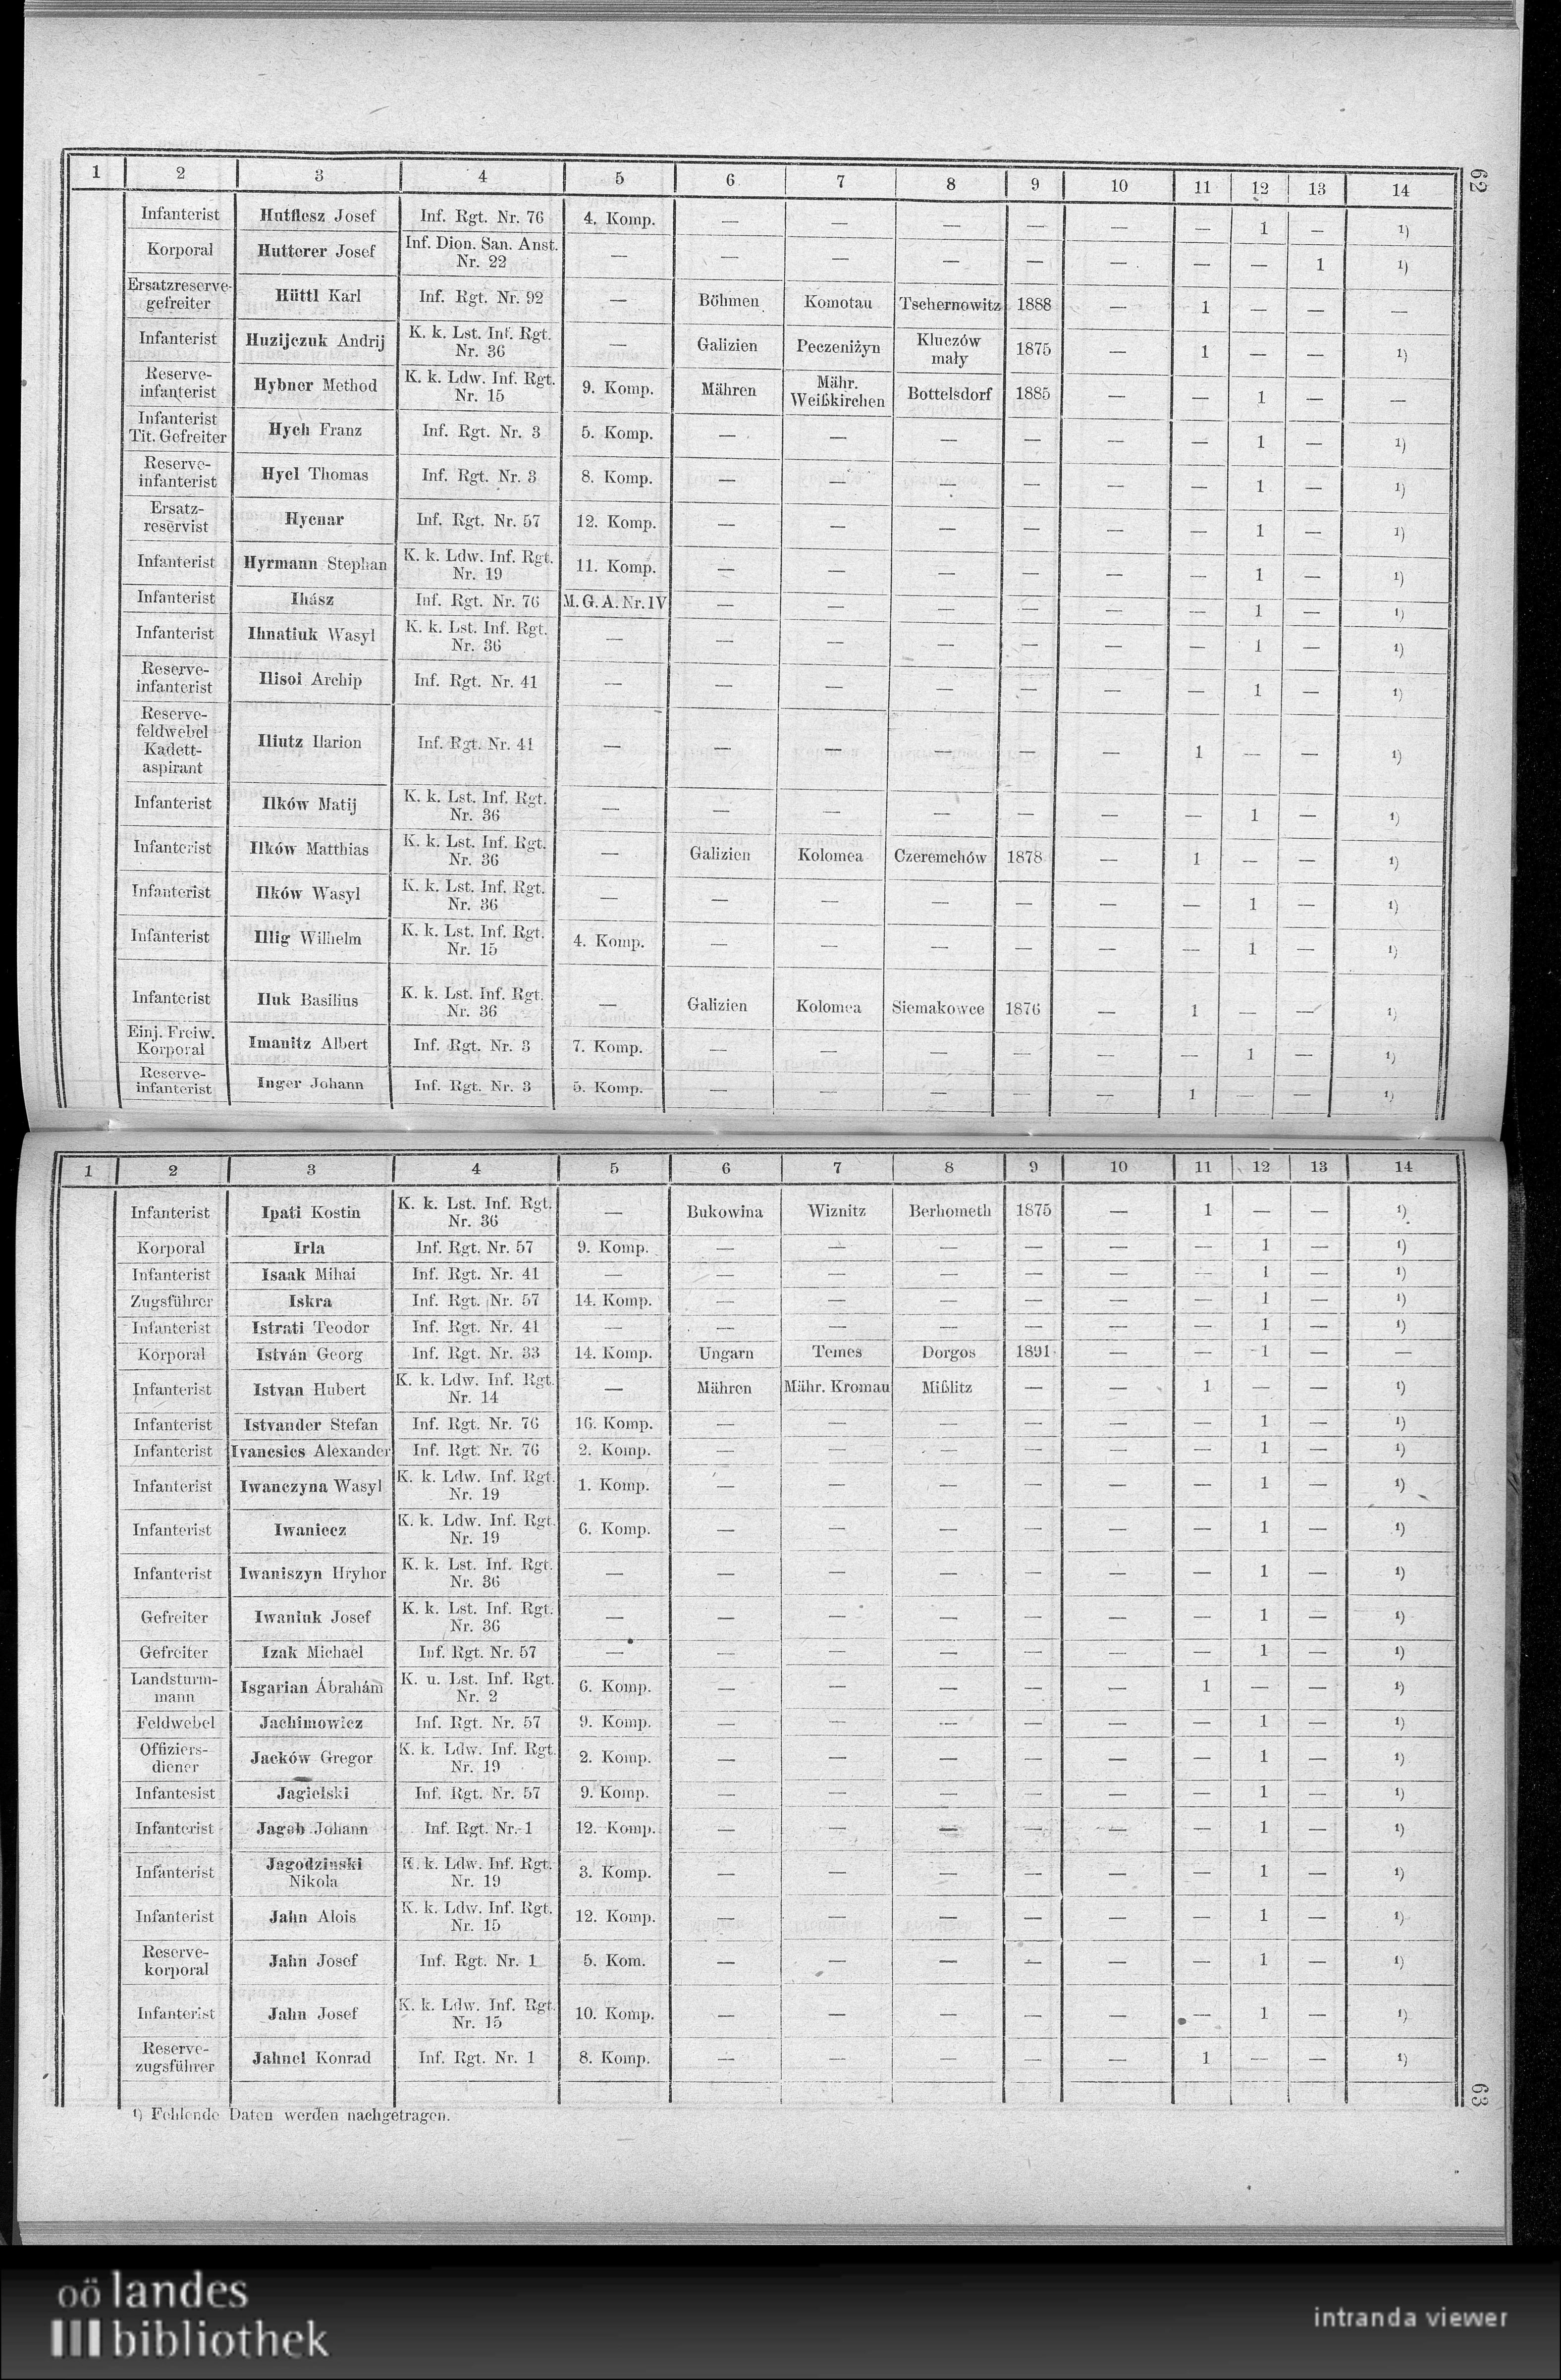 62
1 2 3 4 5 6 7 8 9 10 11 12 13 14
Infanterist Hutflesz Josef Inf. Rgt. Nr. 76 4. Komp. — — — — — — 1 — ¹)
Korporal Hutterer Josef Inf. Dion. San. Anst. Nr. 22 — — — — — — — — 1 ¹)
Ersatzreserve-gefreiter Hüttl Karl Inf. Rgt. Nr. 92 — Böhmen Komotau Tschernowitz 1888 — 1 — — —
Infanterist Huzijczuk Andrij K. k. Lst. Inf. Rgt. Nr. 36 — Galizien Peczeniżyn Kluczów mały 1875 — 1 — — ¹)
Reserve-infanterist Hybner Method K. k. Ldw. Inf. Rgt. Nr. 15 9. Komp. Mähren Mähr. Weißkirchen Bottelsdorf 1885 — — 1 — —
Infanterist Tit. Gefreiter Hych Franz Inf. Rgt. Nr. 3 5. Komp. — — — — — — 1 — ¹)
Reserve-infanterist Hycl Thomas Inf. Rgt. Nr. 3 8. Komp. — — — — — — 1 — ¹)
Ersatz-reservist Hycnar Inf. Rgt. Nr. 57 12. Komp. — — — — — — 1 — ¹)
Infanterist Hyrmann Stephan K. k. Ldw. Inf. Rgt. Nr. 19 11. Komp. — — — — — — 1 — ¹)
Infanterist Ihász Inf. Rgt. Nr. 76 M. G. A. Nr. IV — — — — — — 1 — ¹)
Infanterist Ihnatiuk Wasyl K. k. Lst. Inf. Rgt. Nr. 36 — — — — — — — 1 — ¹)
Reserve-infanterist Ilisoi Archip Inf. Rgt. Nr. 41 — — — — — — — 1 — ¹)
Reserve-feldwebel Kadett-aspirant Iliutz Ilarion Inf. Rgt. Nr. 41 — — — — — — 1 — — ¹)
Infanterist Ilków Matij K. k. Lst. Inf. Rgt. Nr. 36 — — — — — — — 1 — ¹)
Infanterist Ilków Matthias K. k. Lst. Inf. Rgt. Nr. 36 — Galizien Kolomea Czeremchów 1878 — 1 — — ¹)
Infanterist Ilków Wasyl K. k. Lst. Inf. Rgt. Nr. 36 — — — — — — — 1 — ¹)
Infanterist Illig Wilhelm K. k. Lst. Inf. Rgt. Nr. 15 4. Komp. — — — — — — 1 — ¹)
Infanterist Iluk Basilius K. k. Lst. Inf. Rgt. Nr. 36 — Galizien Kolomea Siemakowce 1876 — 1 — — ¹)
Einj. Freiw. Korporal Imanitz Albert Inf. Rgt. Nr. 3 7. Komp. — — — — — — 1 — ¹)
Reserve-infanterist Inger Johann Inf. Rgt. Nr. 3 5. Komp. — — — — — 1 — — ¹)
1 2 3 4 5 6 7 8 9 10 11 12 13 14
Infanterist Ipati Kostin K. k. Lst. Inf. Rgt. Nr. 36 — Bukowina Wiznitz Berhometh 1875 — 1 — — ¹)
Korporal Irla Inf. Rgt. Nr. 57 9. Komp. — — — — — — 1 — ¹)
Infanterist Isaak Mihai Inf. Rgt. Nr. 41 — — — — — — — 1 — ¹)
Zugsführer Iskra Inf. Rgt. Nr. 57 14. Komp. — — — — — — 1 — ¹)
Infanterist Istrati Teodor Inf. Rgt. Nr. 41 — — — — — — — 1 — ¹)
Korporal István Georg Inf. Rgt. Nr. 33 14. Komp. Ungarn Temes Dorgos 1891 — — 1 — —
Infanterist Istvan Hubert K. k. Ldw. Inf. Rgt. Nr. 14 — Mähren Mähr. Kromau Mißlitz — — 1 — — ¹)
Infanterist Istvander Stefan Inf. Rgt. Nr. 76 16. Komp. — — — — — — 1 — ¹)
Infanterist Ivancsics Alexander Inf. Rgt. Nr. 76 2. Komp. — — — — — — 1 — ¹)
Infanterist Iwanczyna Wasyl K. k. Ldw. Inf. Rgt. Nr. 19 1. Komp. — — — — — — 1 — ¹)
Infanterist Iwaniecz K. k. Ldw. Inf. Rgt. Nr. 19 6. Komp. — — — — — — 1 — ¹)
Infanterist Iwaniszyn Hryhor K. k. Lst. Inf. Rgt. Nr. 36 — — — — — — — 1 — ¹)
Gefreiter Iwaniuk Josef K. k. Lst. Inf. Rgt. Nr. 36 — — — — — — — 1 — ¹)
Gefreiter Izak Michael Inf. Rgt. Nr. 57 — — — — — — — 1 — ¹)
Landsturm-mann Isgarian Ábrahám K. u. Lst. Inf. Rgt. Nr. 2 6. Komp. — — — — — 1 — — ¹)
Feldwebel Jachimowicz Inf. Rgt. Nr. 57 9. Komp. — — — — — — 1 — ¹)
Offiziers-diener Jacków Gregor K. k. Ldw. Inf. Rgt. Nr. 19 2. Komp. — — — — — — 1 — ¹)
Infantesist Jagielski Inf. Rgt. Nr. 57 9. Komp. — — — — — — 1 — ¹)
Infanterist Jagob Johann Inf. Rgt. Nr. 1 12. Komp. — — — — — — 1 — ¹)
Infanterist Jagodzinski Nikola K. k. Ldw. Inf. Rgt. Nr. 19 3. Komp. — — — — — — 1 — ¹)
Infanterist Jahn Alois K. k. Ldw. Inf. Rgt. Nr. 15 12. Komp. — — — — — — 1 — ¹)
Reserve-korporal Jahn Josef Inf. Rgt. Nr. 1 5. Kom. — — — — — — 1 — ¹)
Infanterist Jahn Josef K. k. Ldw. Inf. Rgt. Nr. 15 10. Komp. — — — — — — 1 — ¹)
Reserve-zugsführer Jahnel Konrad Inf. Rgt. Nr. 1 8. Komp. — — — — — 1 — — ¹)
¹) Fehlende Daten werden nachgetragen.
63
oö landes
bibliothek
intranda viewer